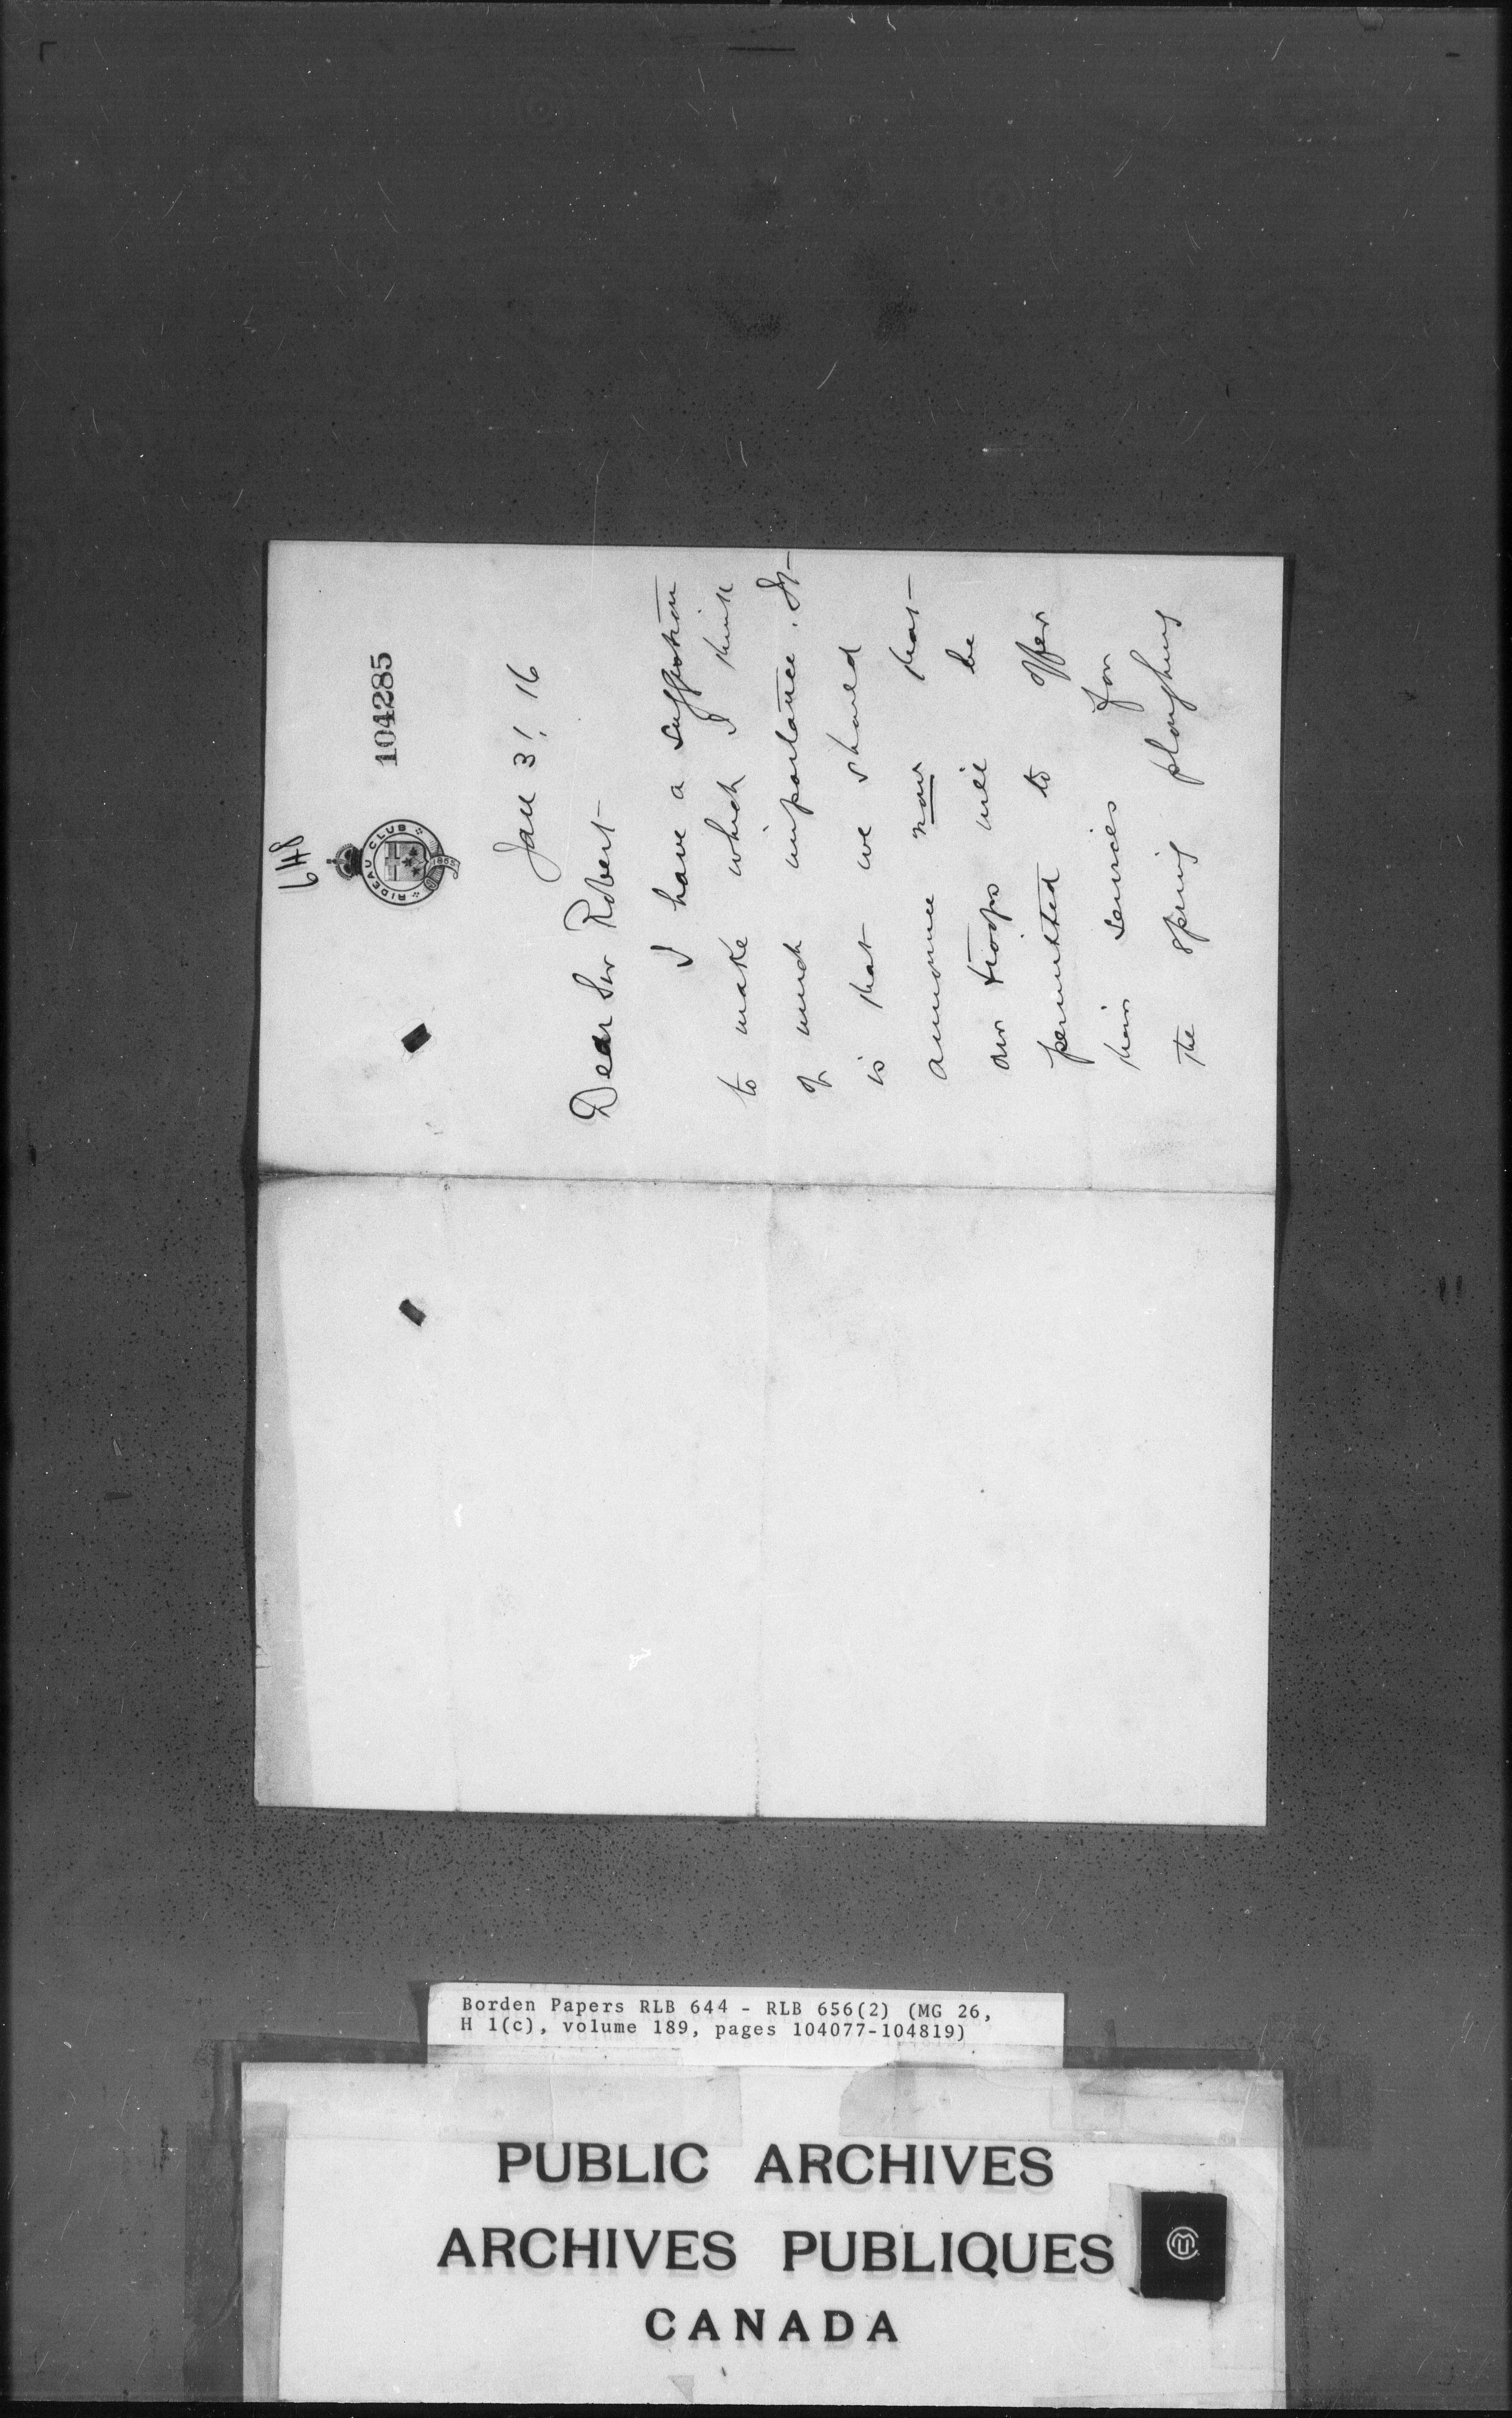 648
RIDEAU CLUB
1865
104285
Jan 3! 16
Dear Sir Robert
I have a suggestion
to make which I think
of much importance. It
is that we should
announce now that
our troops will be
permitted to offer
their services for
the spring ploughing
Borden Papers RLB 644 - RLB 656(2) (MG 26,
H 1(c), volume 189, pages 104077-104819)
PUBLIC ARCHIVES
ARCHIVES PUBLIQUES
CANADA